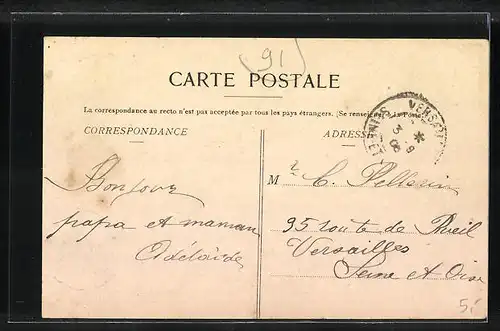 91
CARTE POSTALE
La correspondance au recto n'est pas acceptée par tous les pays étrangers. (Se renseigner à la Poste)
CORRESPONDANCE
ADRESSE
VERSAILLES
3 - 9
06
SEINE-ET-
Bonjour
papa et maman
Adélaïde
M r C. Pellerin
95 route de Rueil
Versailles
Seine et Oise